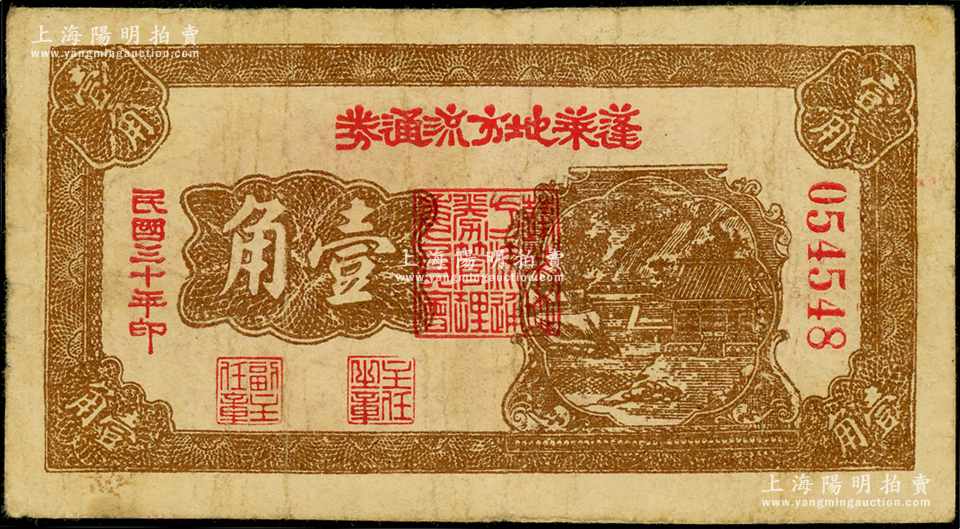 上海陽明拍賣
www.yangmingauction.com
壹角
壹角
蓬萊地方流通券
民國三十年印
壹角
054548
上海陽明拍賣
www.yangmingauction.com
副主任章
主任之章
壹角
壹角
上海陽明拍賣
www.yangmingauction.com